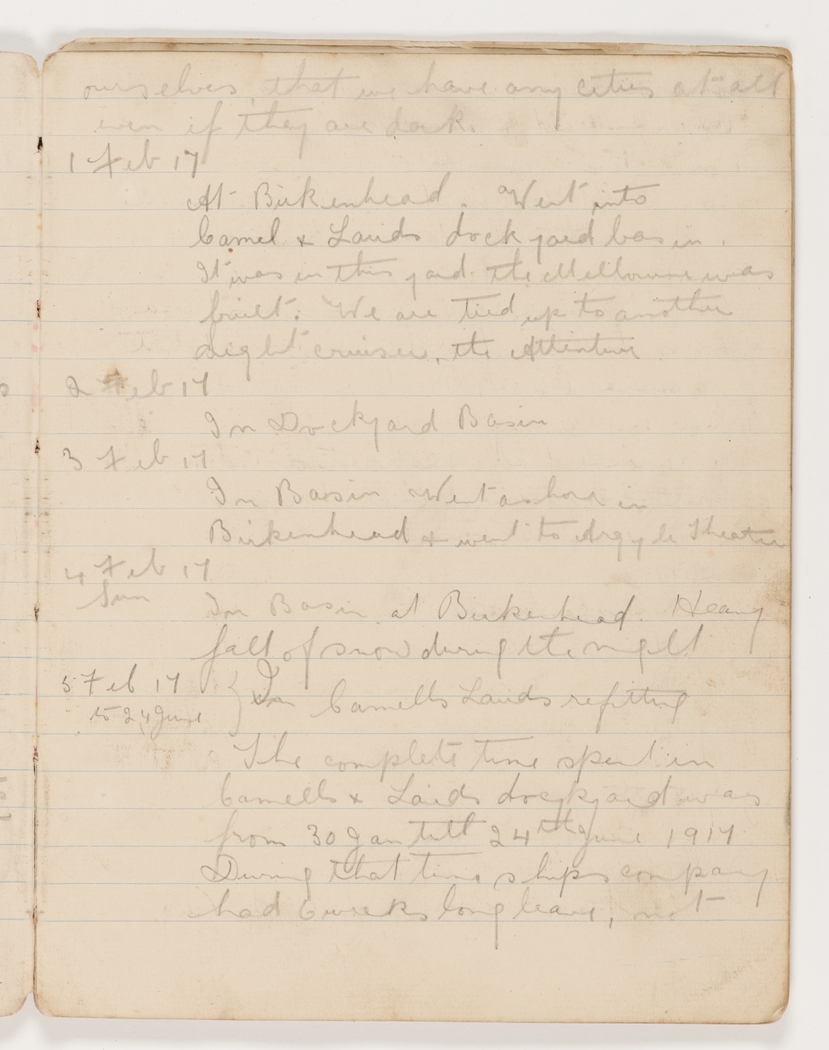 ourselves, that we have any cities at all
even if they are dark.
1 Feb 17
At Birkenhead. Went into
Camel & Lairds dockyard basin.
It was in this yard the Melbourne was
built. We are tied up to another
light cruiser, the Attentive
2 Feb 17
In Dockyard Basin
3 Feb 17
In Basin Went ashore in
Birkenhead & went to Argyle Theatre
4 Feb 17
Sun In Basin at Birkenhead. Heavy
fall of snow during the night
5 Feb 17 } In Camells Lairds refitting
to 24 June
The complete time spent in
Camells & Lairds dockyard was
from 30 Jan till 24th June 1917
During that time ships company
had 6 weeks long leave, not